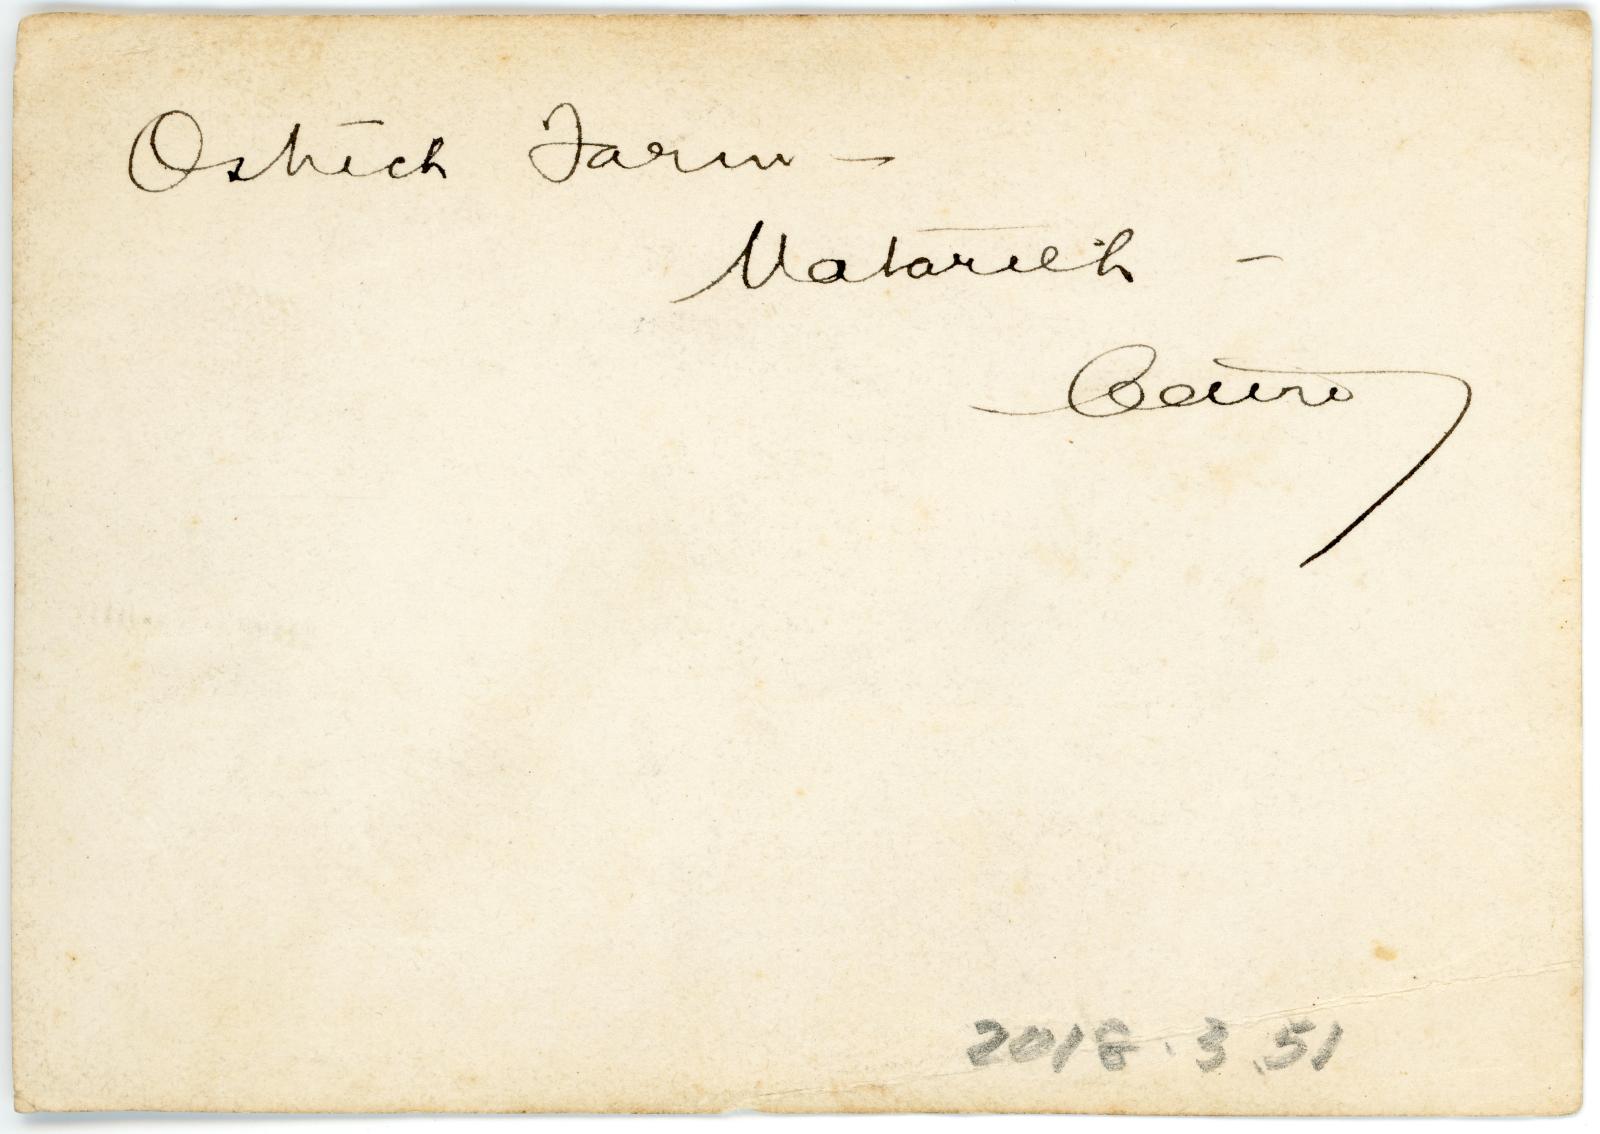 Ostrich Farm –
Matarieh –
Cairo
2018.3.51